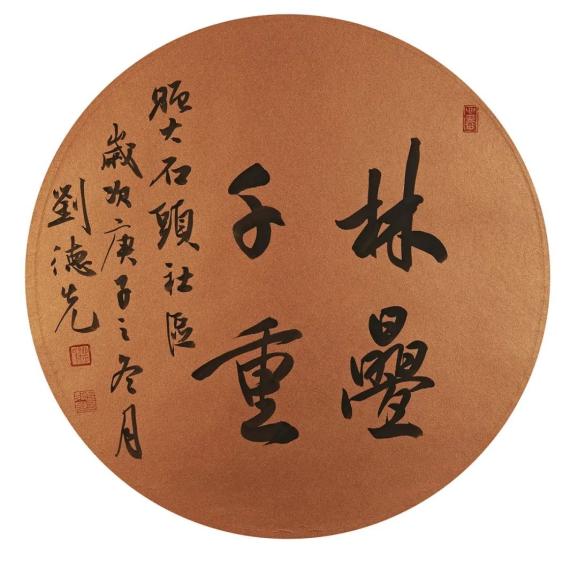 林疊
千重
大石頭社區
歲次庚子之冬月
劉德先